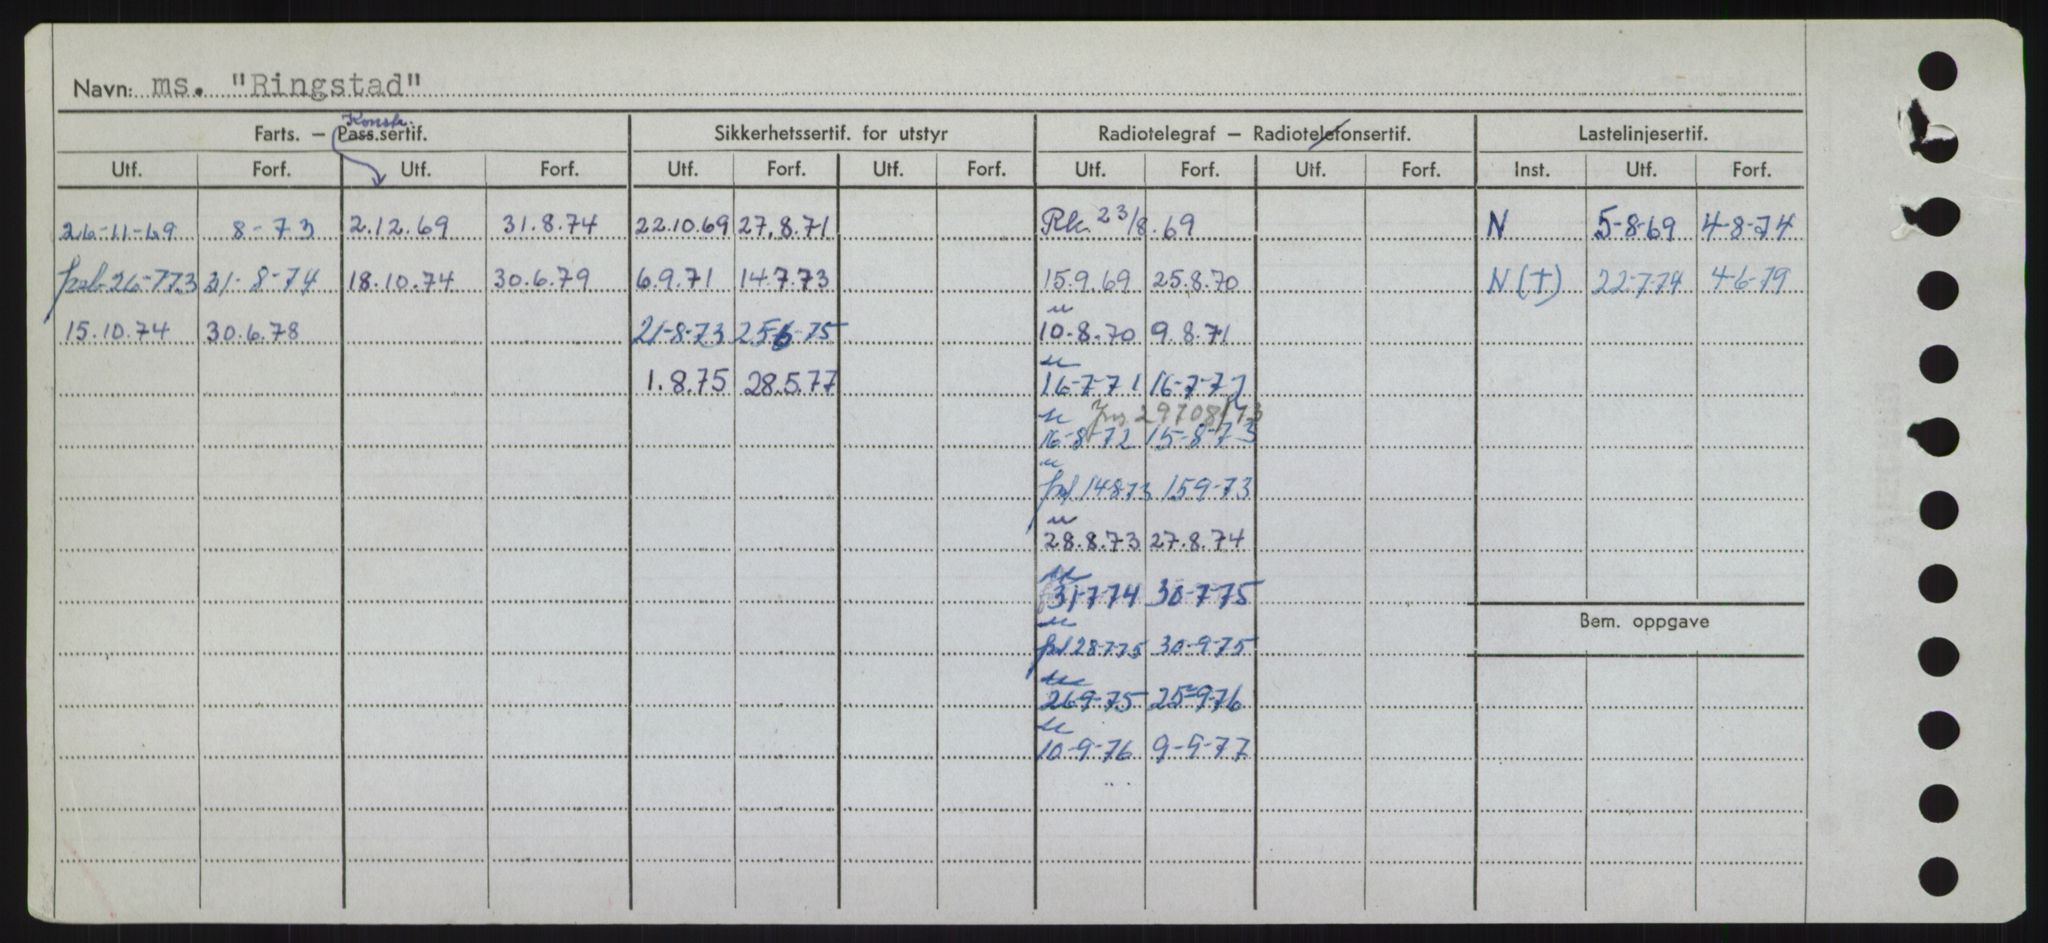 Navn: ms. "Ringstad"
Konstr.
Farts. – Pass.sertif. Sikkerhetssertif. for utstyr Radiotelegraf – Radiotelefonsertif. Lastelinjesertif.
Utf. Forf. Utf. Forf. Utf. Forf. Utf. Forf. Utf. Forf. Utf. Forf. Inst. Utf. Forf.
26-11-69 8-73 2.12.69 31.8.74 22.10.69 27.8.71 Rk. 23/8.69 N 5-8-69 4-8-74
26-7-73 31-8-74 18.10.74 30.6.79 6.9.71 14.7.73 15.9.69 25.8.70 N(T) 22-7-74 4-6-79
15.10.74 30.6.78 21-8-73 25-6-75 10.8.70 9.8.71
1.8.75 28.5.77 16-7-71 16-7-72
29708/73
16-8-72 15-8-73
14-8-73 15-9-73
28.8.73 27.8.74
31-7-74 30-7-75
Bem. oppgave
28-7-75 30-9-75
26-9-75 25-9-76
10-9-76 9-9-77